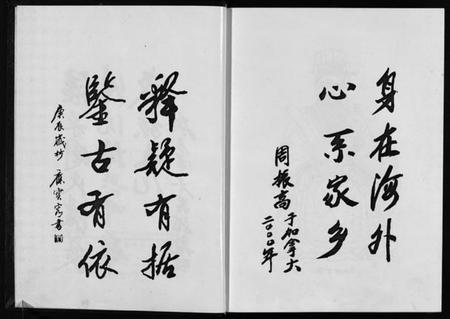 身在海外
心系家乡
周振高于加拿大
二〇〇〇年
释疑有据
鉴古有依
庚辰岁杪